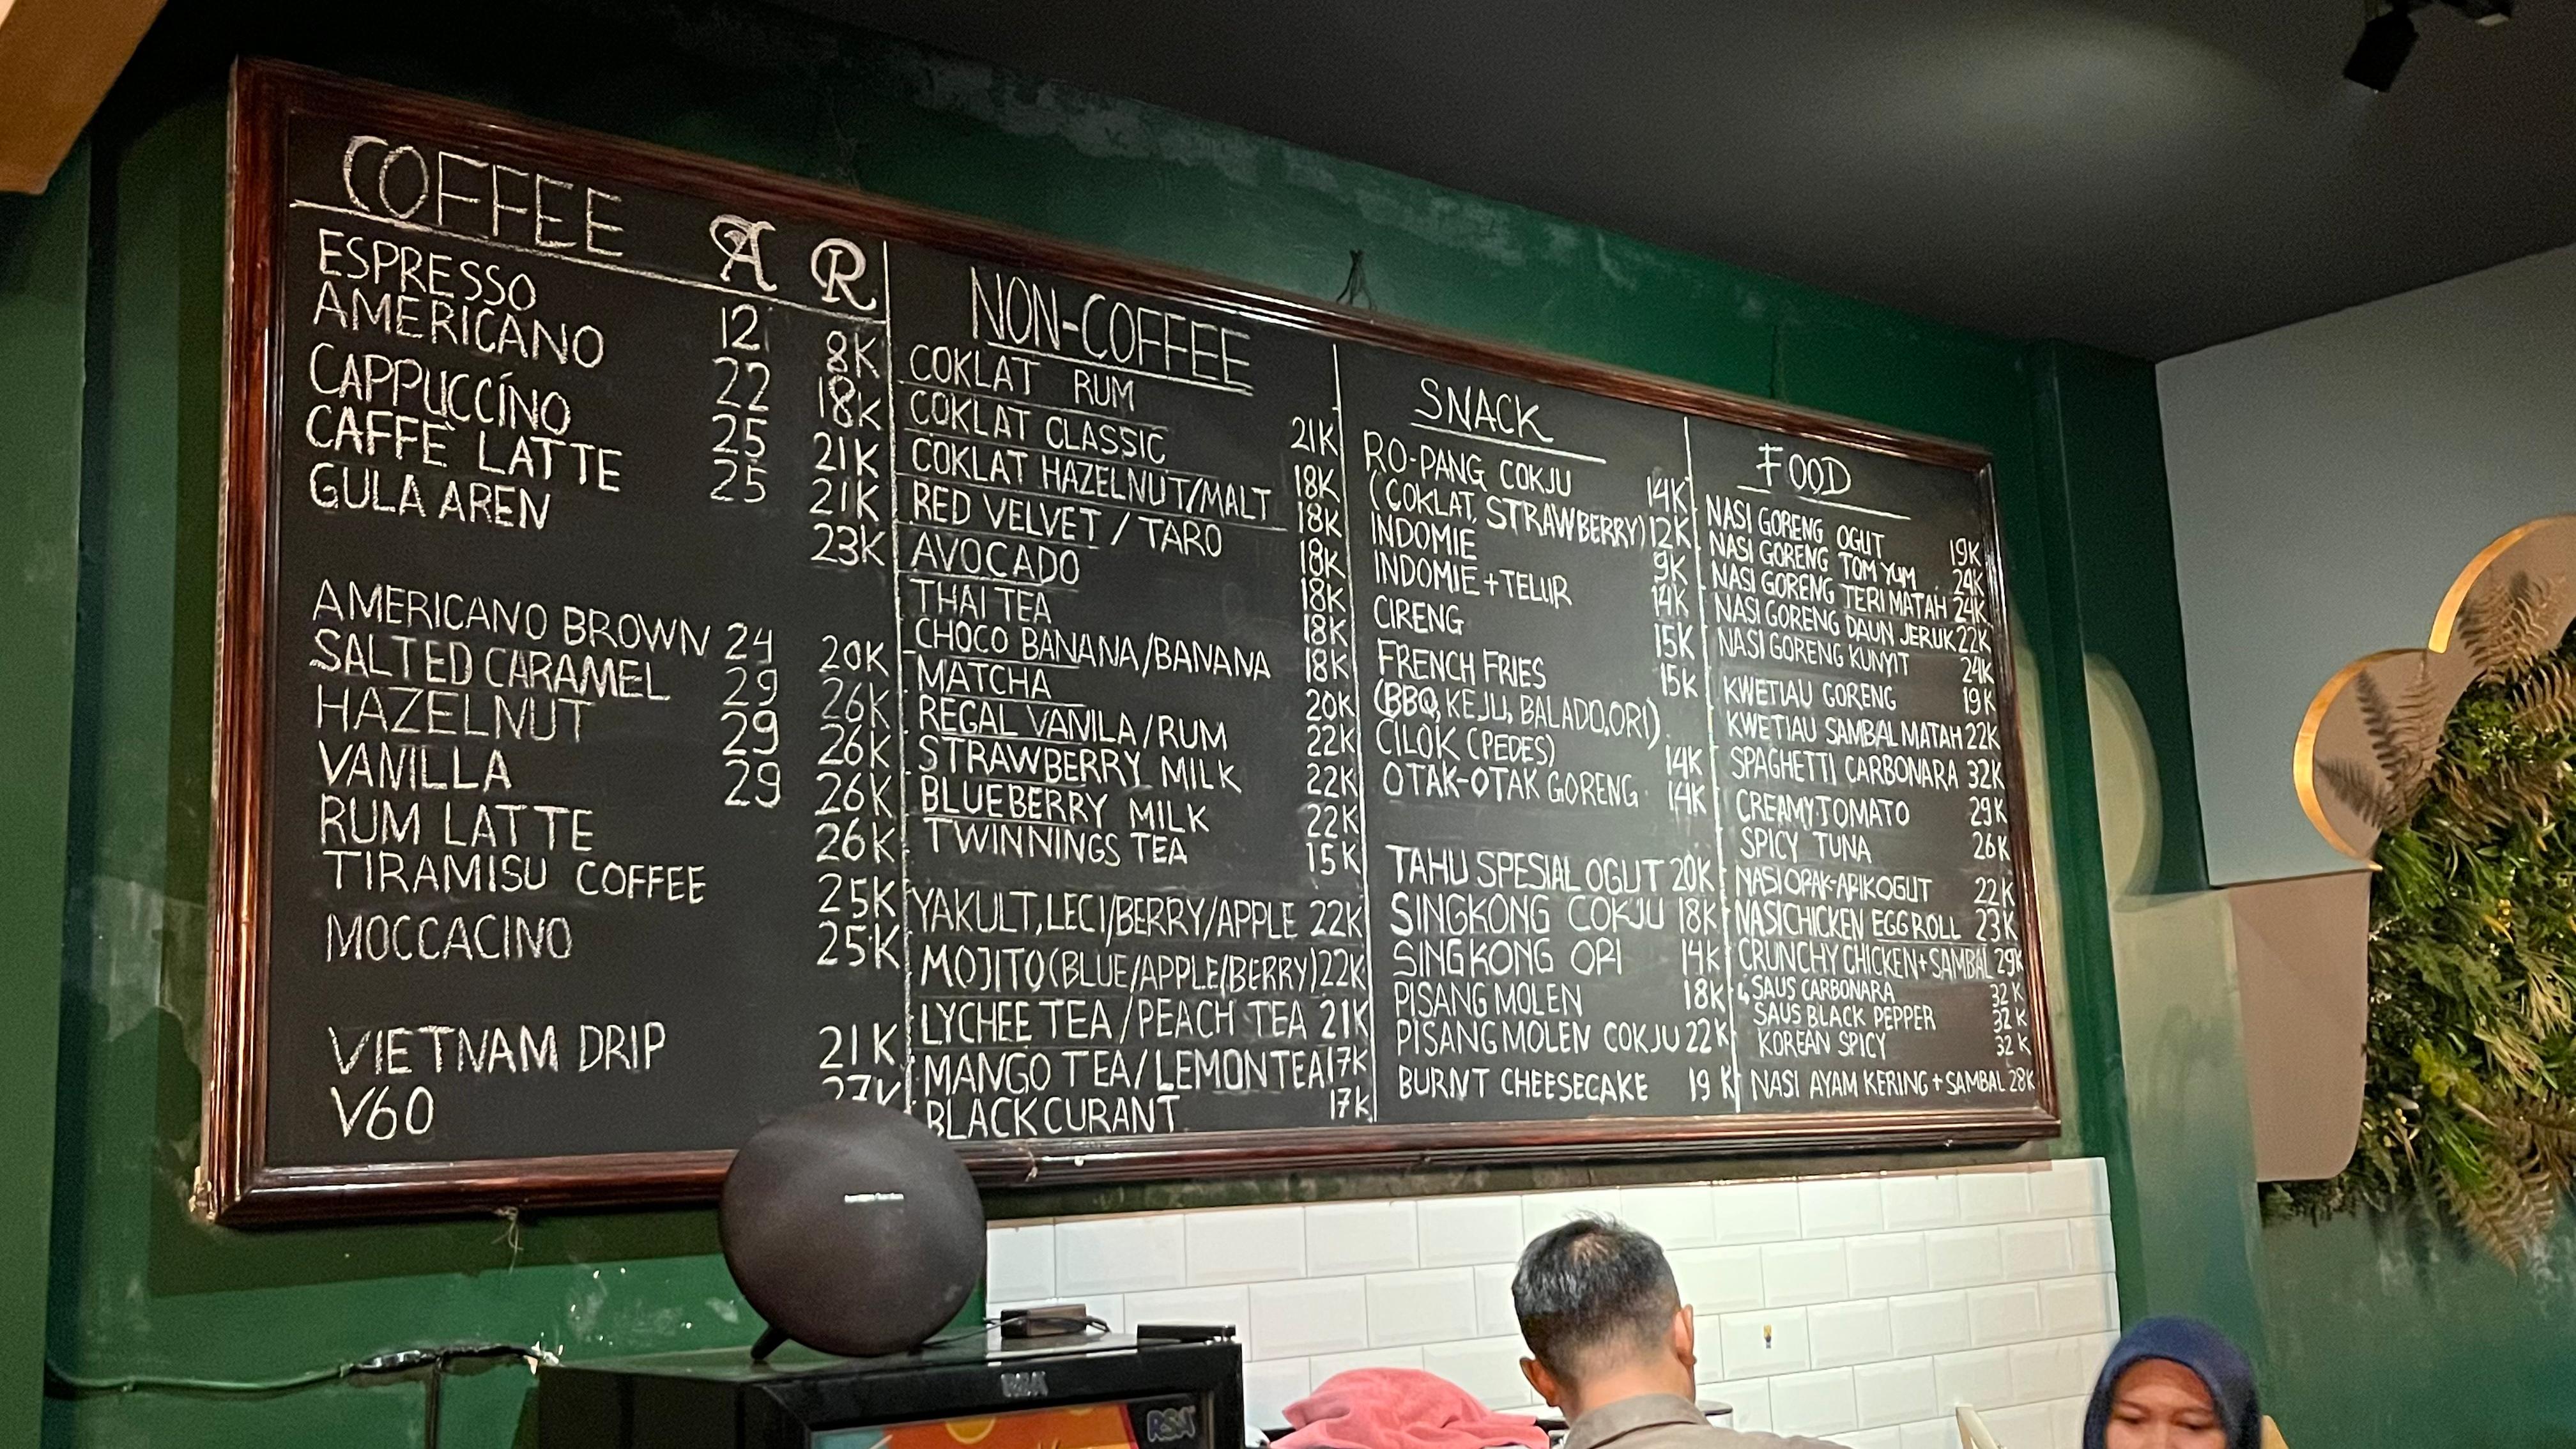 COFFEE A R
ESPRESSO 12 8K
AMERICANO 22 18K
CAPPUCCÍNO 25 21K
CAFFÈ LATTE 25 21K
GULA AREN 23K
AMERICANO BROWN 24 20K
SALTED CARAMEL 29 26K
HAZELNUT 29 26K
VANILLA 29 26K
RUM LATTE 26K
TIRAMISU COFFEE 25K
MOCCACINO 25K
VIETNAM DRIP 21K
V60 27K
NON-COFFEE
COKLAT RUM 21K
COKLAT CLASSIC 18K
COKLAT HAZELNUT/MALT 18K
RED VELVET / TARO 18K
AVOCADO 18K
THAI TEA 18K
CHOCO BANANA/BANANA 18K
MATCHA 20K
REGAL VANILA/RUM 22K
STRAWBERRY MILK 22K
BLUEBERRY MILK 22K
TWINNINGS TEA 15K
YAKULT, LECI/BERRY/APPLE 22K
MOJITO (BLUE/APPLE/BERRY) 22K
LYCHEE TEA / PEACH TEA 21K
MANGO TEA / LEMONTEA 17K
BLACKCURANT 17K
SNACK
RO-PANG COKJU 14K
(COKLAT, STRAWBERRY) 12K
INDOMIE 9K
INDOMIE + TELUR 14K
CIRENG 15K
FRENCH FRIES 15K
(BBQ, KEJU, BALADO, ORI)
CILOK (PEDES) 14K
OTAK-OTAK GORENG 14K
TAHU SPESIAL OGUT 20K
SINGKONG COKJU 18K
SINGKONG ORI 14K
PISANG MOLEN 18K
PISANG MOLEN COKJU 22K
BURNT CHEESECAKE 19K
FOOD
NASI GORENG OGUT 19K
NASI GORENG TOM YUM 24K
NASI GORENG TERI MATAH 24K
NASI GORENG DAUN JERUK 22K
NASI GORENG KUNYIT 24K
KWETIAU GORENG 19K
KWETIAU SAMBAL MATAH 22K
SPAGHETTI CARBONARA 32K
CREAMY TOMATO 29K
SPICY TUNA 26K
NASI OPAK-ARIK OGUT 22K
NASI CHICKEN EGG ROLL 23K
CRUNCHY CHICKEN + SAMBAL 29K
↳ SAUS CARBONARA 32K
SAUS BLACK PEPPER 32K
KOREAN SPICY 32K
NASI AYAM KERING + SAMBAL 28K
harman/kardon
RSA
RSA